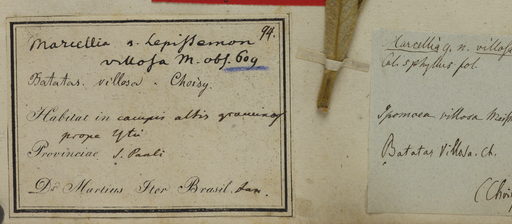 94.
Marcellia s. Lepistemon
villosa M. obs. 609
Batatas villosa. Choisy.
Habitat in campis altis graminos
prope Ytú
Provinciae S. Pauli
Dr. Martius Iter Brasil.
Marcellia g. n. villosa
cal. 5phyllus fol.
Ipomoea villosa Meisn
Batatas Villosa. Ch.
(Chois